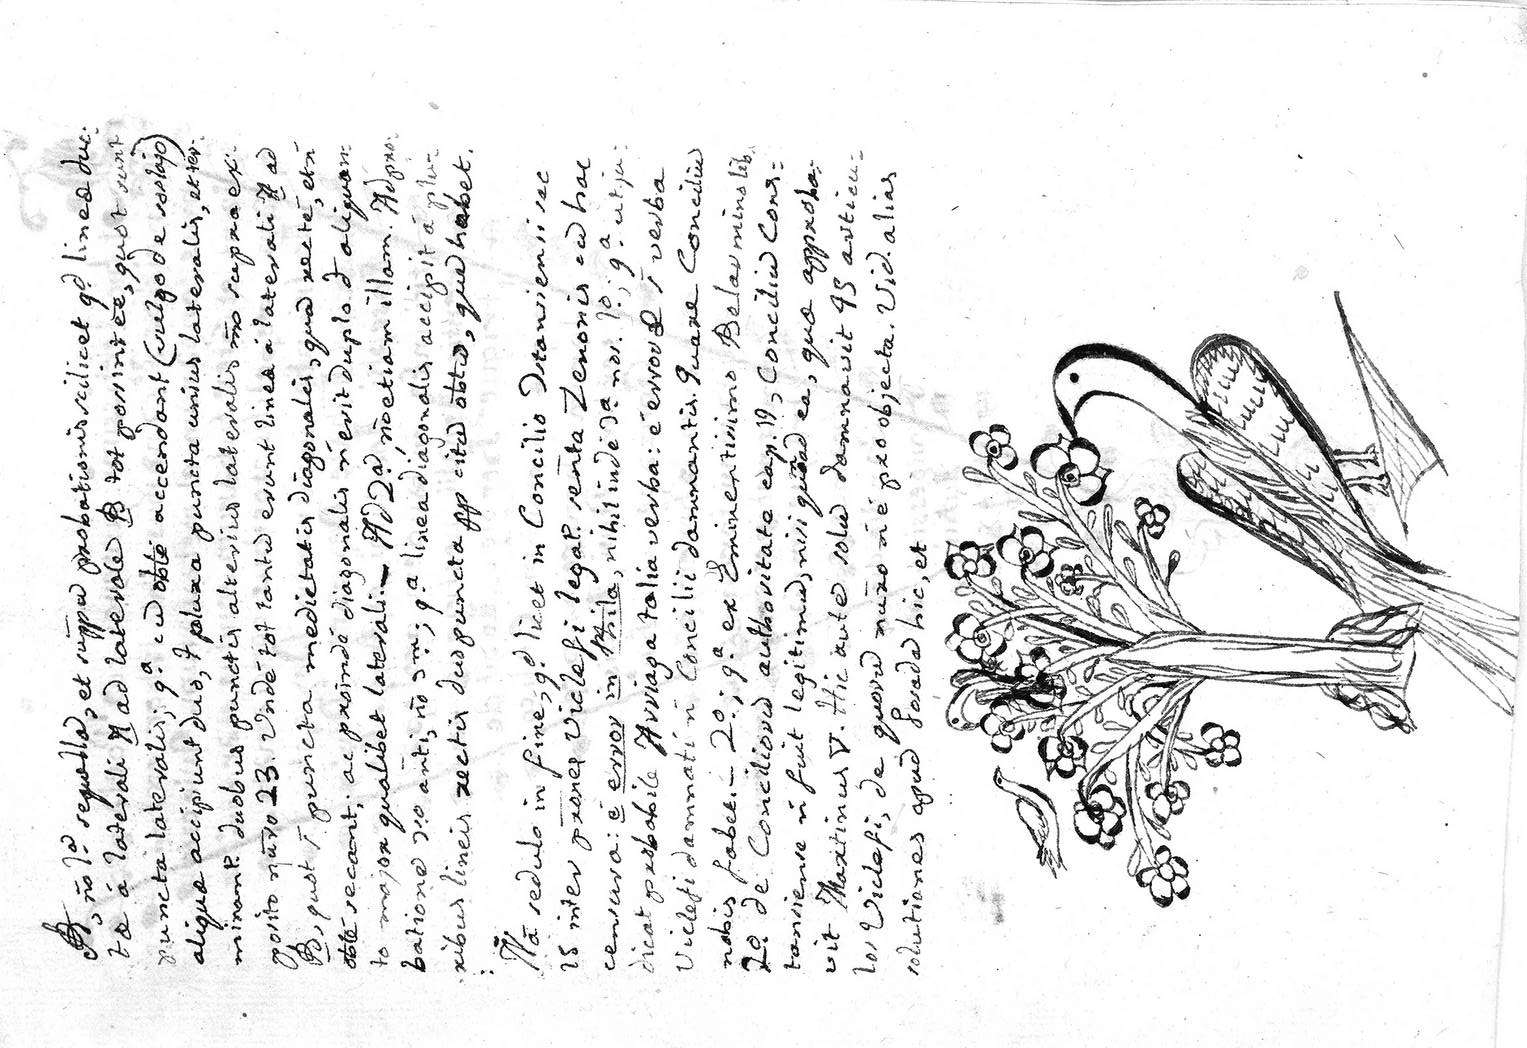 B, nō la sequella, et suppu probationis scilicet qd linea duc-
ta á laterali A ad laterale B tot possint ēē, quot sunt
puncta lateralis; qa cū obtē accendant (vulgo de soslajo)
aliqua accipiunt duo, I plura puncta unius lateralis, et ter-
minant duobus punctis alterius lateralis no supra ex-
posito nūro 23. Unde tot tantū erunt linea á laterali A ad
B, quot s puncta medietatis diagonalis, qua rectē, et ñ
obtē secant; ac proindē diagonalis ñ erit dupla I aliquan-
to major qualibet laterali. — Ad 2a, nō etiam illam. Ad pro-
bationē dio añti, nō ma; qa linea diagonalis accipit á plu-
ribus lineis rectis duo puncta pp citū obtū, que habet.
Na sedulo in fine, qd licet in Concilio Constansiensi sec
15 inter prones Viclefi legat senta Zenonis cū hac
censura: é error in Phila, nihil inde da nos. 1o; qa ut ju-
dicat probabile Arriaga talia verba: é error ñ s verba
Viclefi damnati ñ Concilii damnantis. Quare Conciliū
nobis favet. — 2o; qa ex Eminentissimo Belarmino lib.
2o. de Conciliorū authoritate cap. 19, Conciliū Cons-
tansiense ñ fuit legitimū, nisi quoad ea, qua approba-
vit Martinus V. Hic autē solū damnavit 45 articu-
los Viclefi, de quorū nūro ñ é pro objecta. Vid. alias
solutiones apud Losada hic, et